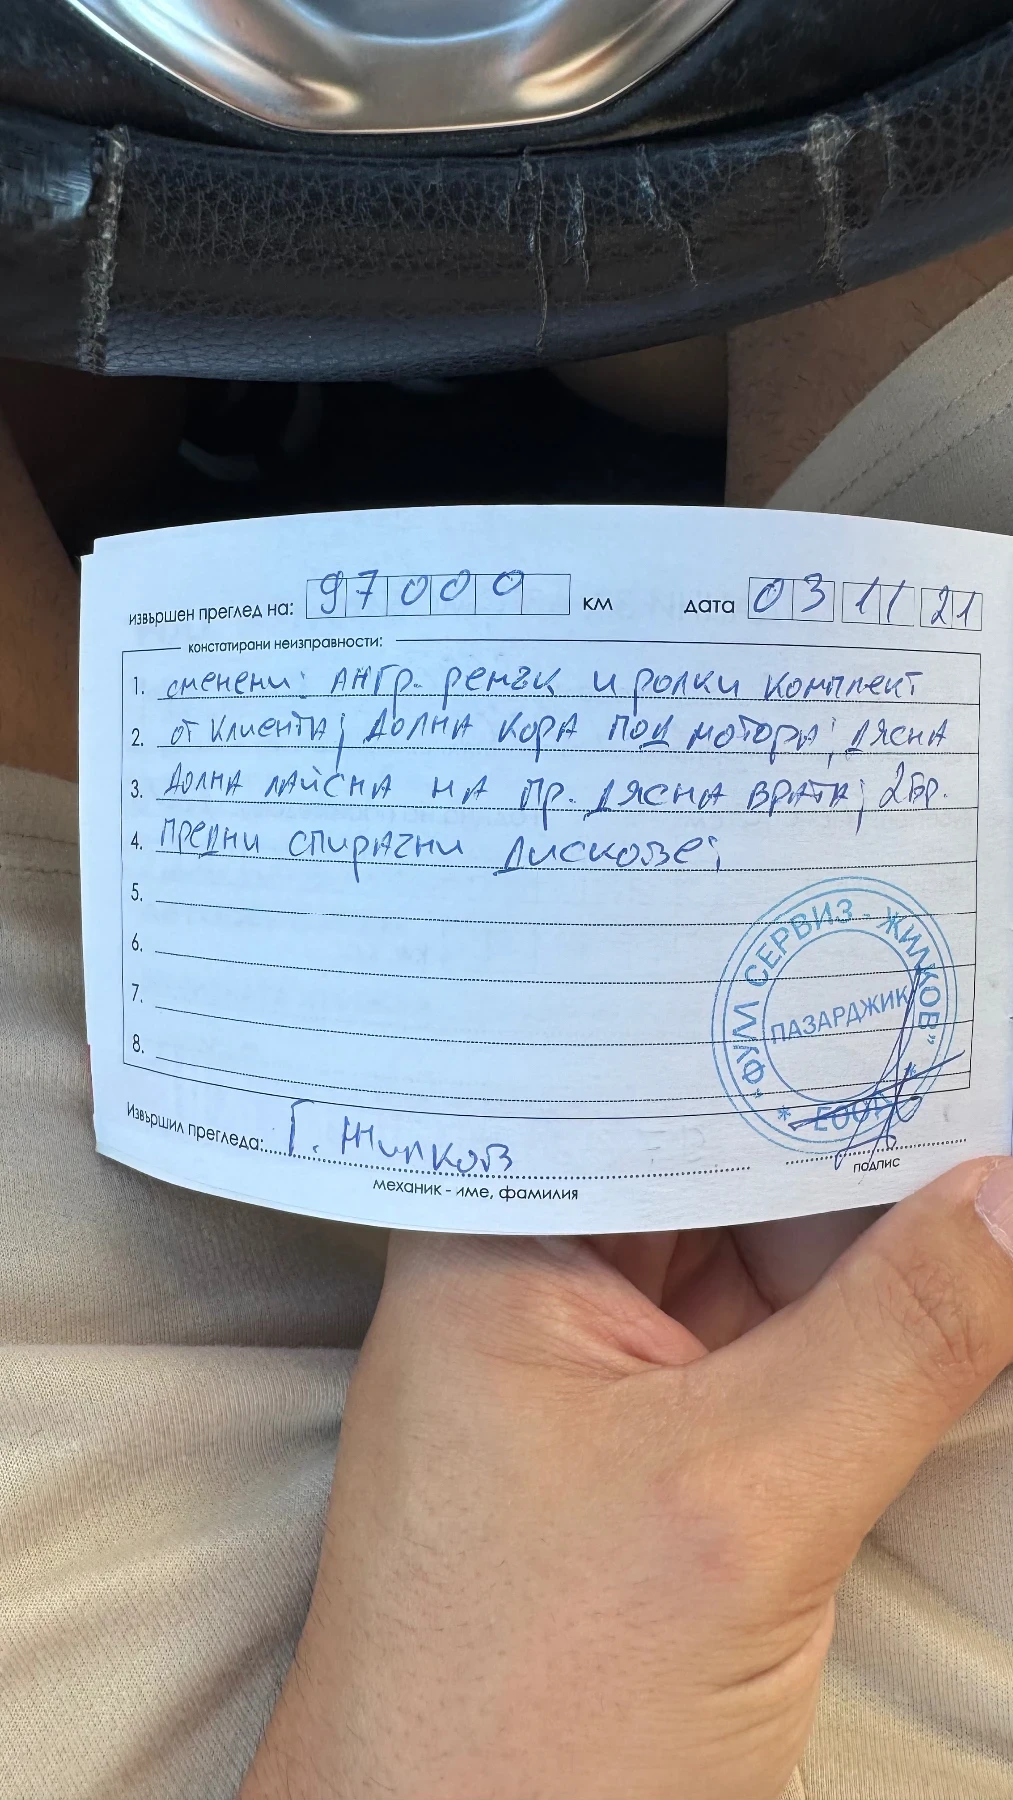 извършен преглед на: 97000 км дата 03 11 21
констатирани неизправности:
1. сменени: АНГР. ремък и ролки комплект
2. от клиента; долна кора под мотора; дясна
3. долна лайсна на пр. дясна врата; 2бр.
4. предни спирачни дискове;
5.
6.
7.
8.
"ФУЛ СЕРВИЗ - ЖИЛКОВ"
ПАЗАРДЖИК
* ЕООД *
Извършил прегледа: Г. Жилков
подпис
механик - име, фамилия